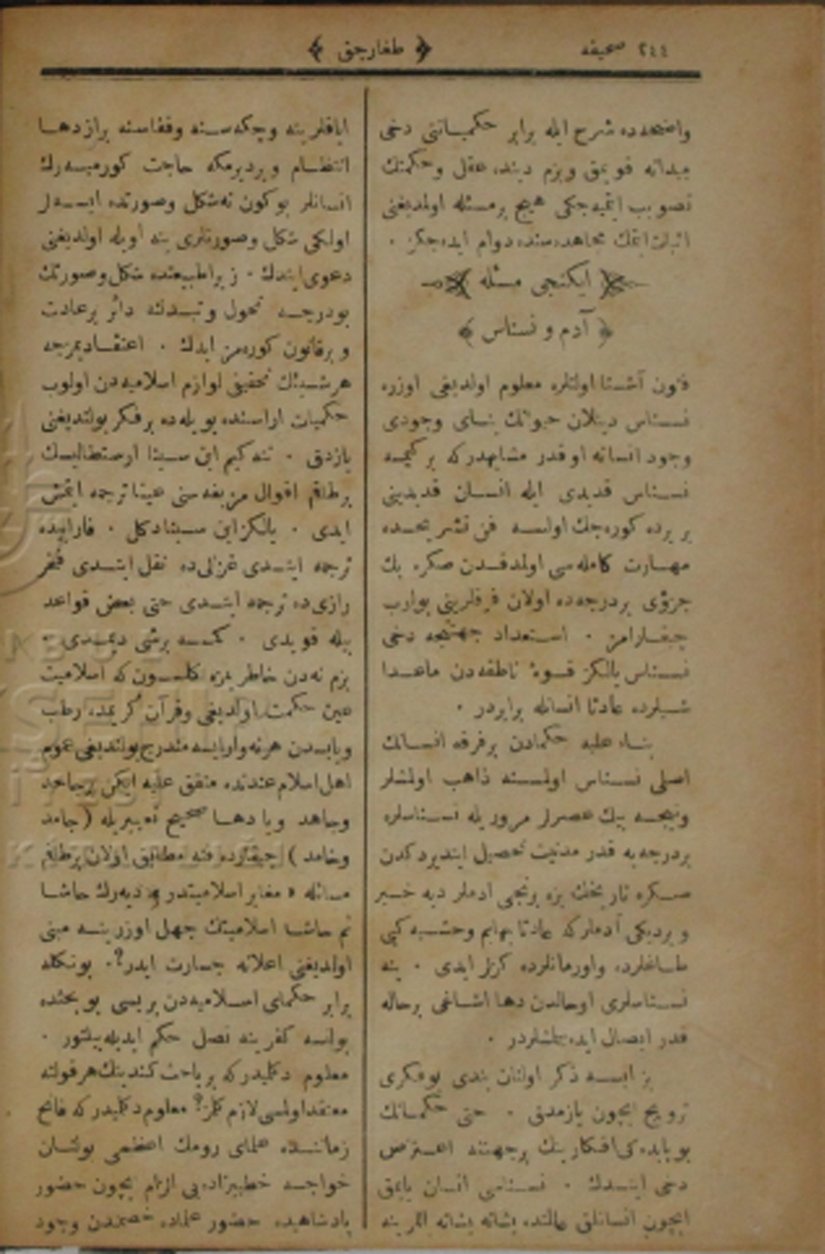 ٢٤٤ صحيفه
﴿ طغارجق ﴾
واضحه‌ده شرح ايله برابر حكمياتنى دخى
ميدانه قويمق وبزم ديند، عقل وحكمتك
تصويب ايتميه‌جكى هيچ برمسئله اولمديغنى
اثبات ايتمك مجاهده‌سنده دوام ايده‌جكز .
ايكنجى مسئله
﴿ آدم و نسناس ﴾
فنون آشنا اولنلره معلوم اولديغى اوزره
نسناس دينلان حيوانك بنياى وجودى
وجود انسانه او قدر مشابهدركه بر كيمسه
نسناس قديدى ايله انسان قديدينى
بر يرده كوره‌جك اولسه فن تشريحده
مهارت كامله‌سى اولمدقدن صكره پك
جزؤى بردرجه‌ده اولان فرقلرينى بولوب
چيقارامز . استعداد جهتنجه دخى
نسناس يالكز قوۀ ناطقه‌دن ماعدا
شيلرده عادتا انسانله برابردر .
بناء عليه حكمادن برفرقه انسانك
اصلى نسناس اولمسنه ذاهب اولمشلر
ونيجه بيك عصرلر مروريله نسناسلره
بردرجه‌يه قدر مدنيت تحصيل ايتديردكدن
صكره تاريخك بزه برنجى ادملر ديه خبر
ويرديكى آدملركه عادتا بهايم وحشيه كبى
طاغلرده واورمانلرده كزر ايدى . ينه
نسناسلرى اوحالدن دها اشاغى برحاله
قدر ايصال ايده‌بيلمشلردر .
بز ايسه ذكر اولنان بندى بوفكرى
ترويج ايچون يازمدق . حتى حكمانك
بوبابده‌كى افكارينك برجهتنه اعتراض
دخى ايتدك . نسناسى انسان يايمق
ايچون انسانلق عالمنده يشايه يشايه اللرينه
اياقلرينه وچكه‌سنه وقفاسنه برازدها
انتظام ويرديرمكه حاجت كورميه‌رك
انسانلر بوكون نه‌شكل وصورتده ايسه‌لر
اولكى شكل وصورتلرى ينه اويله اولديغنى
دعوى ايتدك . زيرا طبيعتده شكل وصورتك
بودرجه تحول وتبدلنه دائر برعادت
وبرقانون كوره‌مز ايدك . اعتقاديمزجه
هرشيئك تحقيقى لوازم اسلاميه‌دن اولوب
حكميات اراسنده بويله‌ده برفكر بولنديغنى
يازدق . نته‌كيم ابن سينا ارسطاليسك
برطاقم اقوال مزيفه‌سنى عينا ترجمه ايتمش
ايدى . يالكز ابن سينادكل . فارابيده
ترجمه ايتدى غزالى‌ده نقل ايتدى فخر
رازى‌ده ترجمه ايتدى حتى بعض قواعد
بيله قويدى . كمسه برشى ديمدى .
بزم نه‌دن خاطريمزه كلسون كه اسلاميت
عين حكمت اولديغى وقرآن كريمده رطب
ويابسدن هرنه وارايسه مندرج بولنديغى عموم
اهل اسلام عندنده متفق عليه ايكن برجاحد
وجاهد ويا دها صحيح تعبيريله (جامد
وخامد) چيقارده فنه مطابق اولان برطاقم
مسائله « مغاير اسلاميتدر » ديه‌رك حاشا
ثم حاشا اسلاميتك جهل اوزرينه مبنى
اولديغنى اعلانه جسارت ايدر؟. بونكله
برابر حكماى اسلاميه‌دن بريسى بوبحثده
بولنسه كفرينه نصل حكم ايديله‌بيلنور .
معلوم دكلميدركه برباحث كندينك هرقولنه
معتقد اولمسى لازم كلمز؟ معلوم دكلميدركه فاتح
زماننده علماى رومك اعظمى بولنان
خواجه خطيبزاده‌يى الزام ايچون حضور
پادشاهيده حضور علماده خصمندن وجود